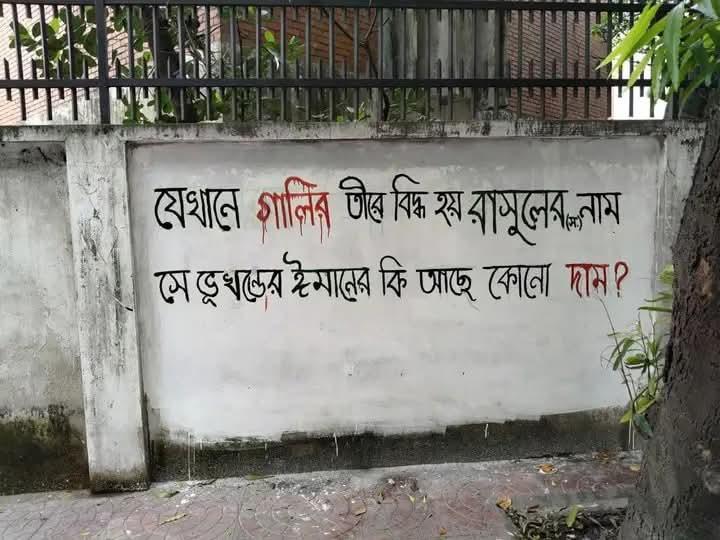 যেখানে গালির তীরে বিদ্ধ হয় রাসুলের(সা:) নাম
সে ভূখন্ডের ঈমানের কি আছে কোনো দাম?